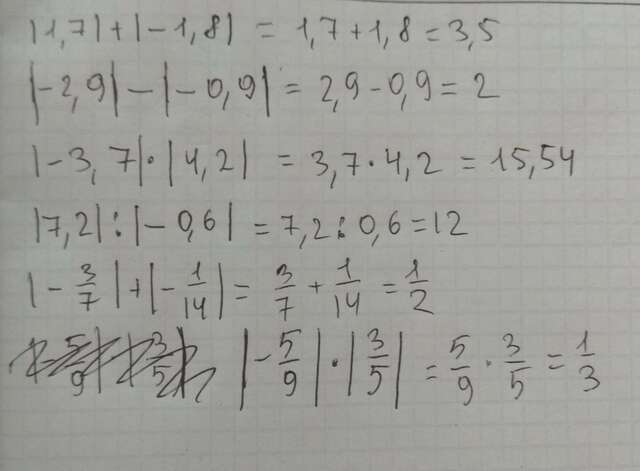 |1,7|+|-1,8| = 1,7+1,8=3,5
|-2,9|-|-0,9|= 2,9-0,9=2
|-3,7|·|4,2| = 3,7·4,2 =15,54
|7,2|:|-0,6| =7,2:0,6=12
|-3/7|+|-1/14|= 3/7+1/14=1/2
|-5/9|·|3/5| =5/9·3/5=1/3